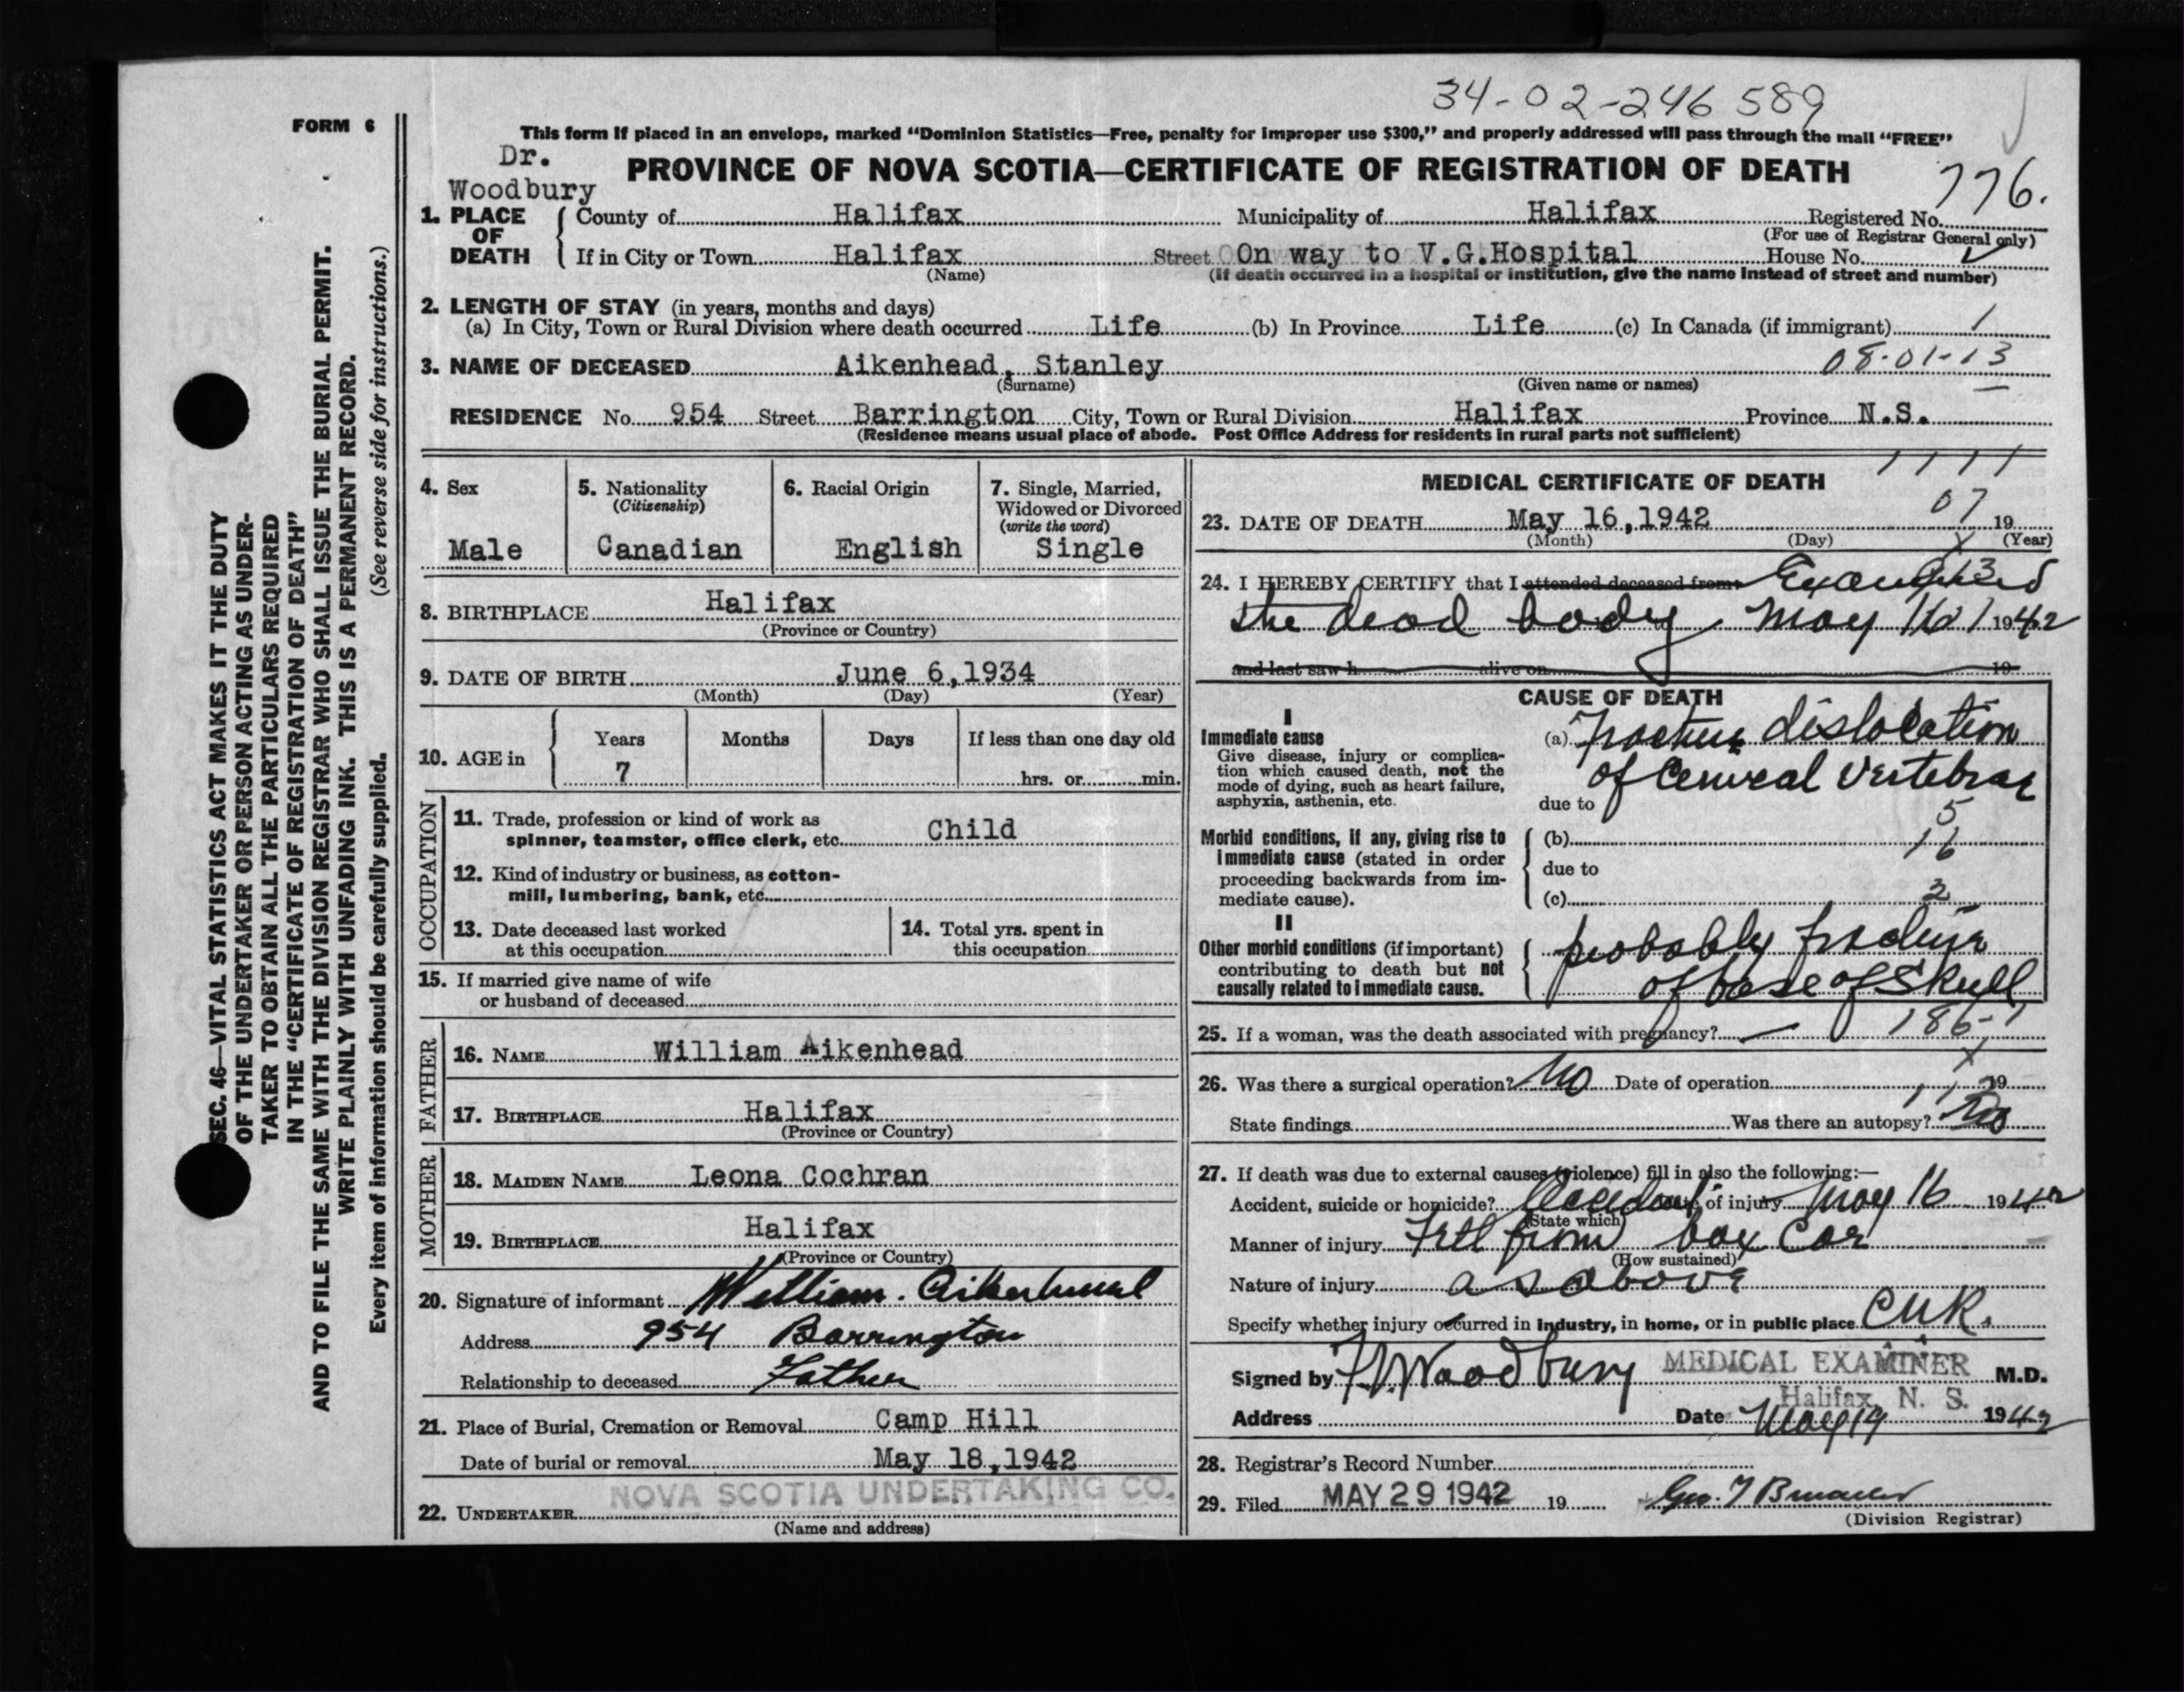 34-02-246 589
FORM 6
This form if placed in an envelope, marked “Dominion Statistics—Free, penalty for improper use $300,” and properly addressed will pass through the mail “FREE”
Dr.
Woodbury
PROVINCE OF NOVA SCOTIA—CERTIFICATE OF REGISTRATION OF DEATH
776.
1. PLACE OF DEATH
County of Halifax Municipality of Halifax Registered No.
(For use of Registrar General only)
If in City or Town Halifax Street On way to V.G.Hospital House No.
(Name) (If death occurred in a hospital or institution, give the name instead of street and number)
2. LENGTH OF STAY (in years, months and days)
(a) In City, Town or Rural Division where death occurred Life (b) In Province Life (c) In Canada (if immigrant) /
08-01-13
3. NAME OF DECEASED Aikenhead, Stanley
(Surname) (Given name or names)
RESIDENCE No. 954 Street Barrington City, Town or Rural Division Halifax Province N.S.
(Residence means usual place of abode. Post Office Address for residents in rural parts not sufficient)
4. Sex
Male
5. Nationality
(Citizenship)
Canadian
6. Racial Origin
English
7. Single, Married,
Widowed or Divorced
(write the word)
Single
8. BIRTHPLACE Halifax
(Province or Country)
9. DATE OF BIRTH June 6,1934
(Month) (Day) (Year)
10. AGE in
Years Months Days If less than one day old
7 hrs. or min.
OCCUPATION
11. Trade, profession or kind of work as
spinner, teamster, office clerk, etc. Child
12. Kind of industry or business, as cotton-
mill, lumbering, bank, etc.
13. Date deceased last worked
at this occupation
14. Total yrs. spent in
this occupation
15. If married give name of wife
or husband of deceased
FATHER
16. NAME William Aikenhead
17. BIRTHPLACE Halifax
(Province or Country)
MOTHER
18. MAIDEN NAME Leona Cochran
19. BIRTHPLACE Halifax
(Province or Country)
20. Signature of informant William. Aikenhead
Address 954 Barrington
Relationship to deceased Father
21. Place of Burial, Cremation or Removal Camp Hill
Date of burial or removal May 18,1942
NOVA SCOTIA UNDERTAKING CO.
22. UNDERTAKER
(Name and address)
1111
MEDICAL CERTIFICATE OF DEATH
07
23. DATE OF DEATH May 16,1942 19
(Month) (Day) (Year)
24. I HEREBY CERTIFY that I attended deceased from: Examined
the dead body May 16 1942
and last saw h alive on 19
CAUSE OF DEATH
I
Immediate cause
Give disease, injury or complica-
tion which caused death, not the
mode of dying, such as heart failure,
asphyxia, asthenia, etc.
(a) Fracture dislocation
of Cervical Vertebrae
due to
5
Morbid conditions, if any, giving rise to
immediate cause (stated in order
proceeding backwards from im-
mediate cause).
(b) 16
due to
(c) 2
II
Other morbid conditions (if important)
contributing to death but not
causally related to immediate cause.
probably fracture
of base of Skull
186-1
25. If a woman, was the death associated with pregnancy? —
26. Was there a surgical operation? No Date of operation 19
State findings Was there an autopsy? No
27. If death was due to external causes (violence) fill in also the following:—
Accident, suicide or homicide? Accident Date of injury May 16 1942
(State which)
Manner of injury Fell from box car
(How sustained)
Nature of injury as above
Specify whether injury occurred in industry, in home, or in public place CNR.
Signed by Woodbury MEDICAL EXAMINER M.D.
Halifax, N. S.
Address Date May 19 1942
28. Registrar's Record Number
29. Filed MAY 29 1942 19
(Division Registrar)
SEC. 46—VITAL STATISTICS ACT MAKES IT THE DUTY
OF THE UNDERTAKER OR PERSON ACTING AS UNDER-
TAKER TO OBTAIN ALL THE PARTICULARS REQUIRED
IN THE “CERTIFICATE OF REGISTRATION OF DEATH”
AND TO FILE THE SAME WITH THE DIVISION REGISTRAR WHO SHALL ISSUE THE BURIAL PERMIT.
WRITE PLAINLY WITH UNFADING INK. THIS IS A PERMANENT RECORD.
Every item of information should be carefully supplied. (See reverse side for instructions.)